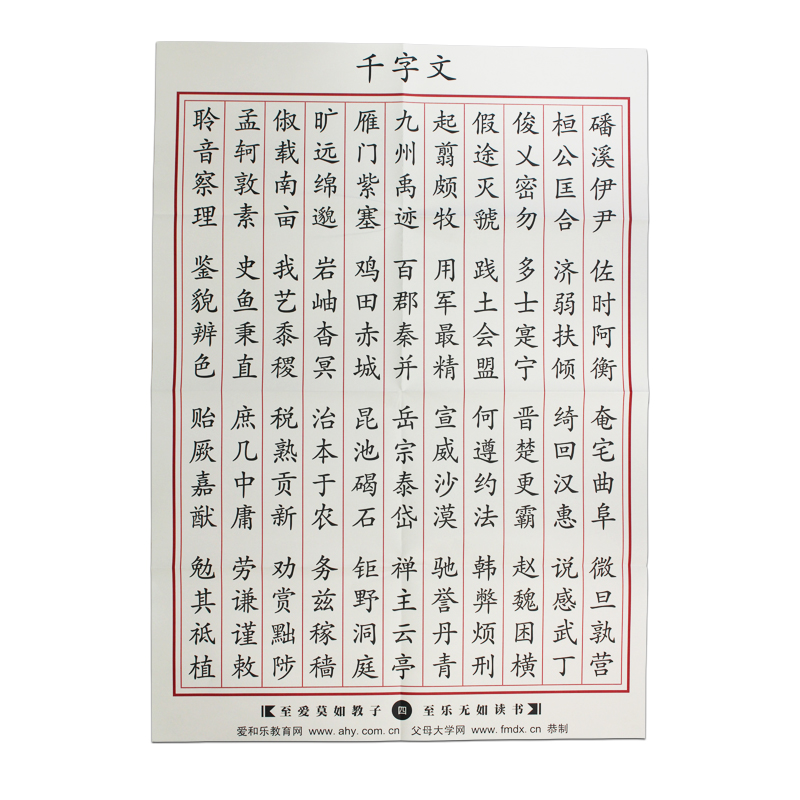 千字文
磻溪伊尹 佐时阿衡 奄宅曲阜 微旦孰营
桓公匡合 济弱扶倾 绮回汉惠 说感武丁
俊乂密勿 多士寔宁 晋楚更霸 赵魏困横
假途灭虢 践土会盟 何遵约法 韩弊烦刑
起翦颇牧 用军最精 宣威沙漠 驰誉丹青
九州禹迹 百郡秦并 岳宗泰岱 禅主云亭
雁门紫塞 鸡田赤城 昆池碣石 钜野洞庭
旷远绵邈 岩岫杳冥 治本于农 务兹稼穑
俶载南亩 我艺黍稷 税熟贡新 劝赏黜陟
孟轲敦素 史鱼秉直 庶几中庸 劳谦谨敕
聆音察理 鉴貌辨色 贻厥嘉猷 勉其祗植
至爱莫如教子 四 至乐无如读书
爱和乐教育网 www.ahy.com.cn 父母大学网 www.fmdx.cn 恭制